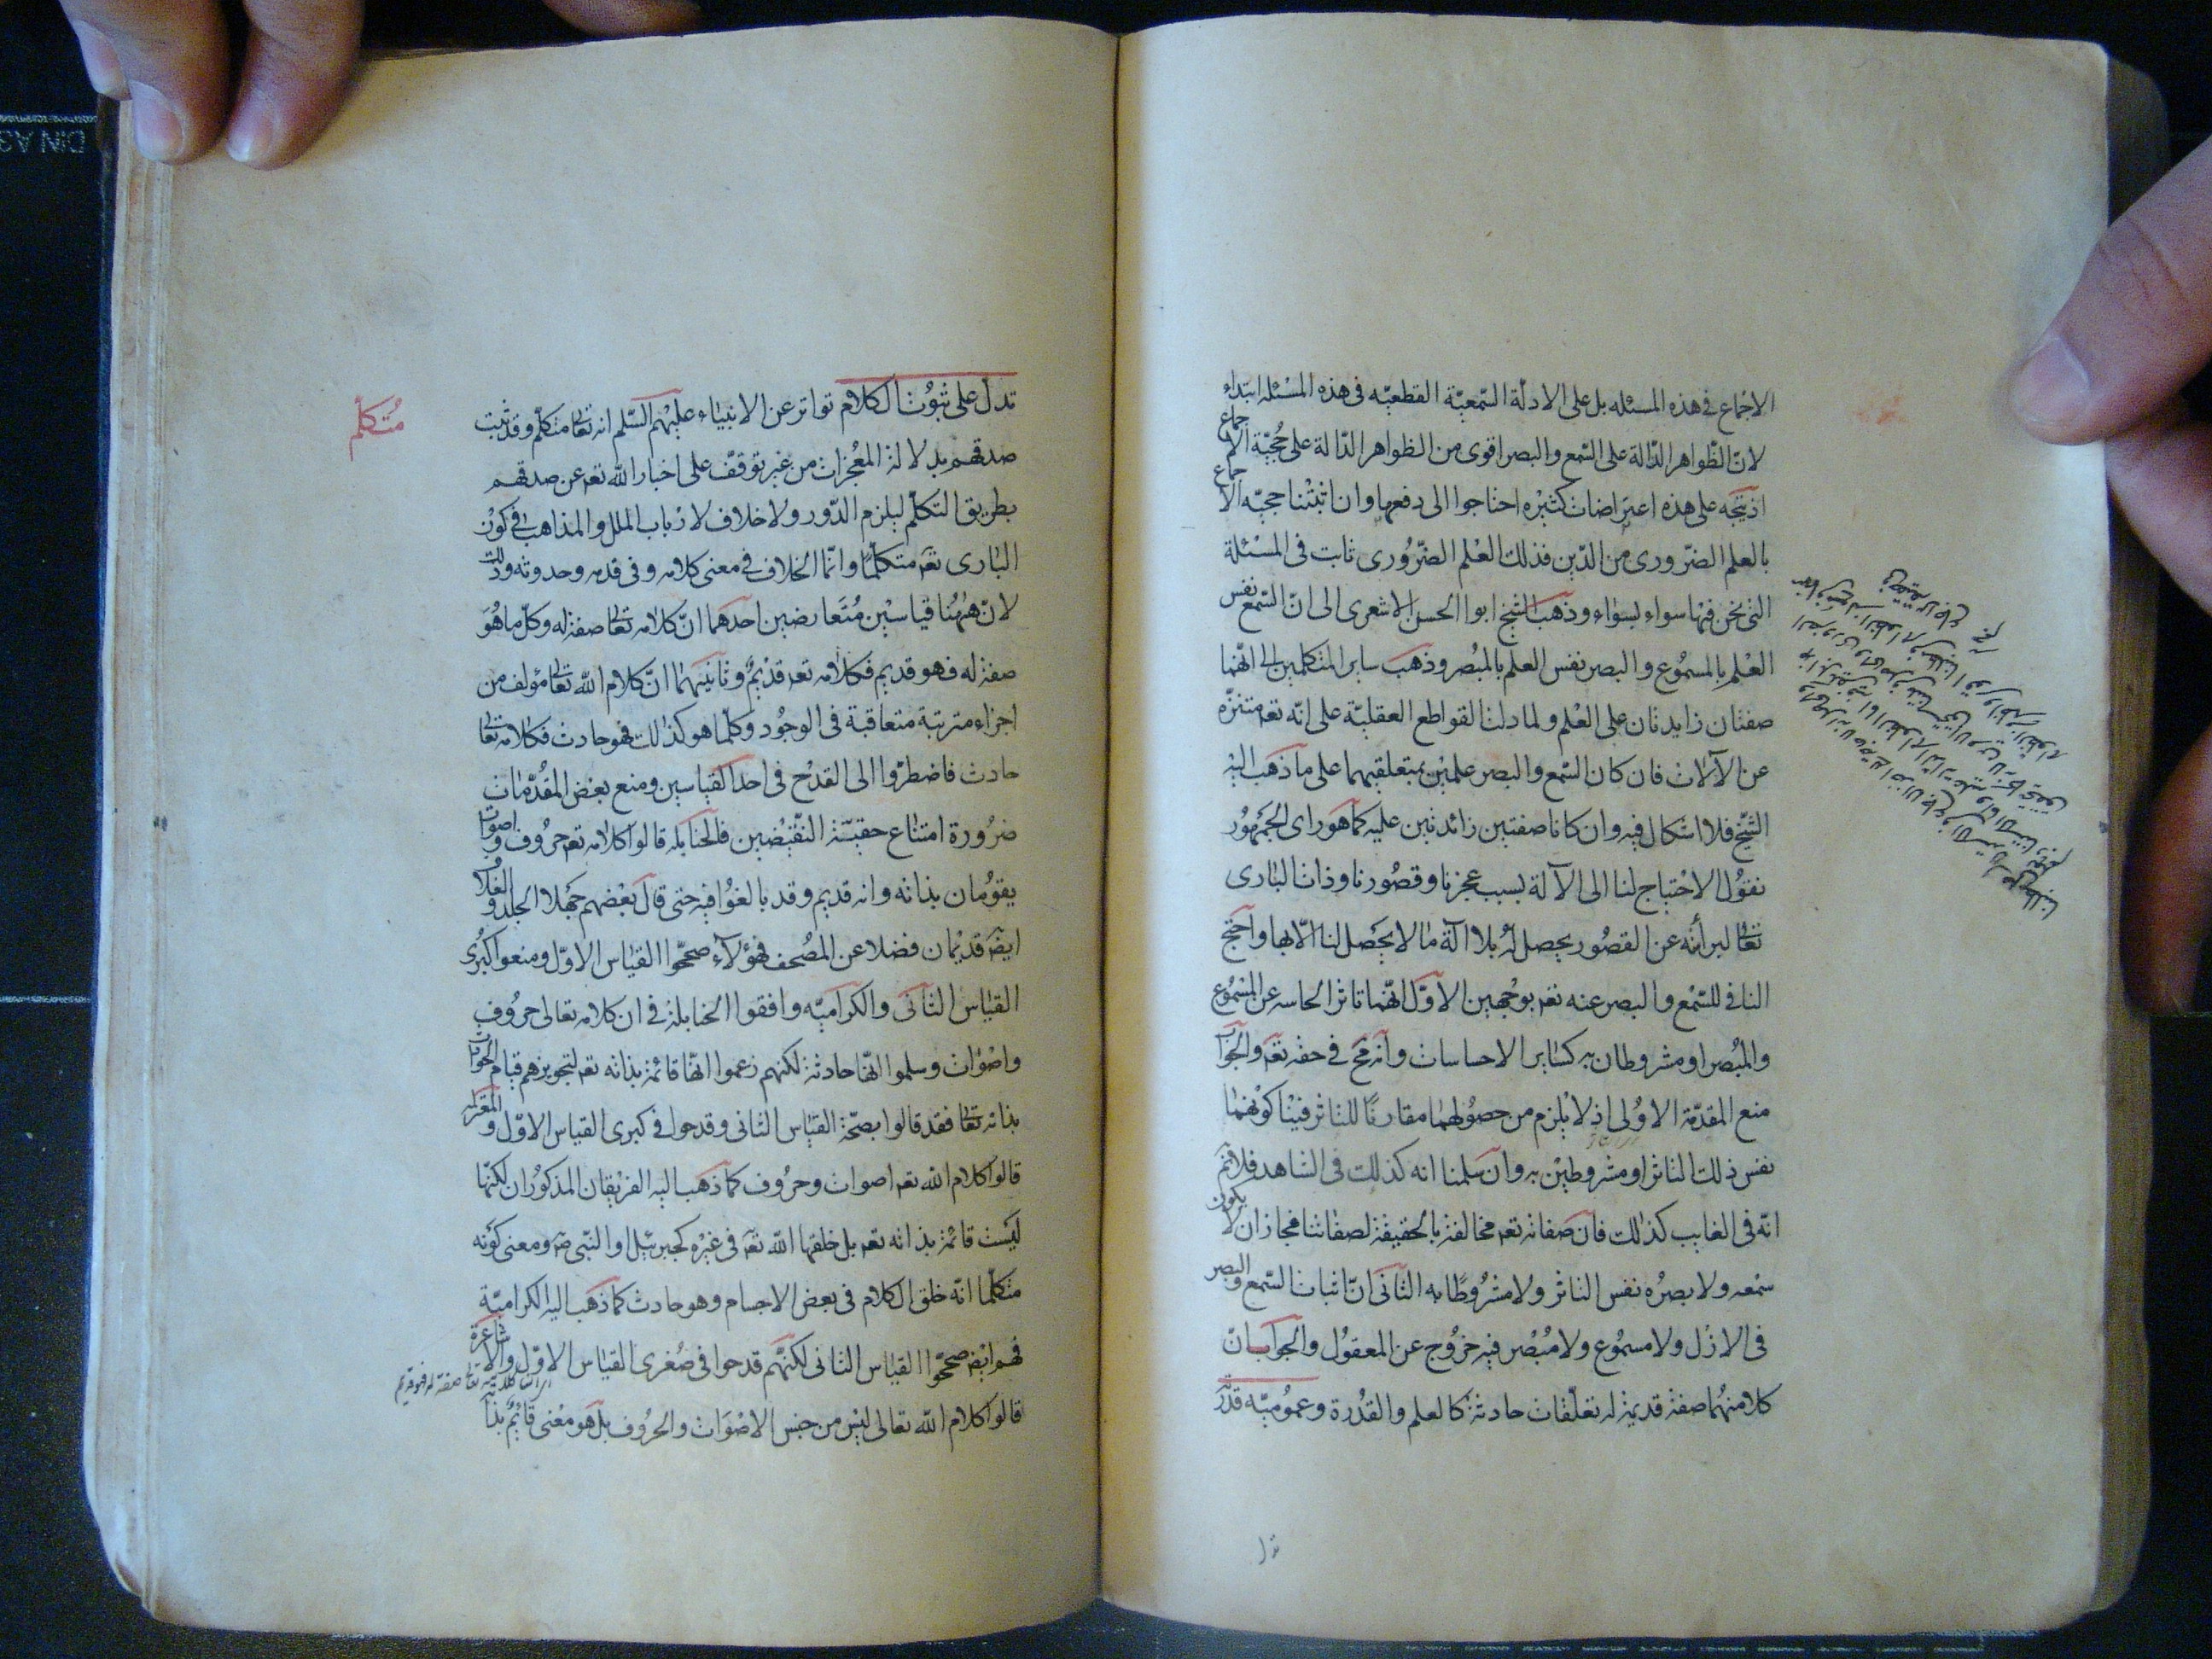 الاجماع فى هذه المسئله بل على الادلّة السّمعيّة القطعيّه فى هذه المسئله ابتداء
لانّ الظواهر الدّالة على السّمع والبصر اقوى من الظواهر الدّالة على حُجيّة الاجماع
اذ يتّجه على هذه اعتراضات كثيره احتاجوا الى دفعها وان اثبتنا حجيّه الاجماع
بالعلم الضّرورى من الدّين فذلك العلم الضّرورى ثابت فى المسئلة
التى نحن فيها سواء بسواء وذهب الشيخ ابوا الحسن الاشعرى الى انّ السّمع نفس
العلم بالمسموع والبصر نفس العلم بالمبصر وذهب ساير المتكلمين الى انّهما
صفتان زايدتان على العلم ولما دلت القواطع العقليّة على انّه تعه متنزّه
عن الآلات فان كان السّمع والبصر علمين بمتعلقيهما على ما ذهب اليه
الشّيخ فلا اشكال فيه وان كانا صفتين زائدتين عليه كما هو راى الجمهور
نقول الاحتياج لنا الى الآلة بسبب عجزنا وقصورنا وذات البارى
تعالى لبرأته عن القصور يحصل له بلا آلة ما لا يحصل لنا الّا بها واحتج
النافى للسّمع والبصر عنه تعه بوجهين الاوّل انّهما تاثر الحاسه عن المسموع
والمبصر او مشروطان به كساير الاحساسات وانه مح فى حقه تعه والجواب
منع المقدّمة الاولى اذ لا يلزم من حصولهما مقارنًا للتاثر فينا كونهما
نفس ذلك التاثر او مشروطين به وان سلمنا انه كذلك فى الشاهد فلا نم
انّه فى الغايب كذلك فان صفاته تعه مخالفة بالحقيقة لصفاتنا فجاز ان لا يكون
سمعه ولا بصره نفس التاثر ولا مشروطًا به الثانى انّ اثبات السّمع والبصر
فى الازل ولا مسموع ولا مبصر فيه خروج عن المعقول والجواب انّ
كلا منهما صفة قديمة له تعلّقات حادثة كالعلم والقدرة وعموميّه قدرته
تدلّ على ثبوت الكلام تواتر عن الانبياء عليهم السّلم انه تعالى متكلّم وقد ثبت
متكلّم
صدقهم بدلالة المعجزات من غير توقّف على اخبار الله تعه عن صدقهم
بطريق التكلّم ليلزم الدّور ولا خلاف لارباب الملل والمذاهب فى كون
البارى تعه متكلّمًا وانّما الخلاف فى معنى كلامه وفى قدمه وحدوثه وذلك
لانّ ههنا قياسين متعارضين احدهما انّ كلامه تعالى صفة له وكلّ ما هو
صفة له فهو قديم فكلامه تعه قديم وثانيهما انّ كلام الله تعالى مؤلف من
اجزاء مترتبة متعاقبة فى الوجود وكلّما هو كذلك فهو حادث فكلامه تعالى
حادث فاضطرّوا الى القدح فى احد القياسين ومنع بعض المقدّمات
ضرورة امتناع حقيّة النّقيضين فالحنابله قالوا كلامه تعه حروف واصوات
يقومان بذاته وانه قديم وقد بالغوا فيه حتى قال بعضهم جهلا الجلد والغلاف
ايضه قديمان فضلا عن المصحف فهؤلاء صحّحوا القياس الاوّل ومنعوا كبرى
القياس الثانى والكراميّه وافقوا الحنابلة فى ان كلامه تعالى حروف
واصوات وسلموا انّها حادثة لكنهم زعموا انّها قائمة بذاته تعه لتجويزهم قيام الحوادث
بذاته تعالى فقد قالوا بصحّة القياس الثانى وقدحوا فى كبرى القياس الاوّل والمعتزله
قالوا كلام الله تعه اصوات وحروف كما ذهب اليه الفريقان المذكوران لكنّها
ليست قائمة بذاته تعه بل خلقها الله تعه فى غيره كجبرئيل او النّبى صه ومعنى كونه
متكلّما انّه خلق الكلام فى بعض الاجسام وهو حادث كما ذهب اليه الكراميّة
فهم ايضه صحّحوا القياس الثانى لكنّهم قدحوا فى صغرى القياس الاوّل والاشاعرة
قالوا كلام الله تعالى ليس من جنس الاصوات والحروف بل هو معنى قائم بذاته